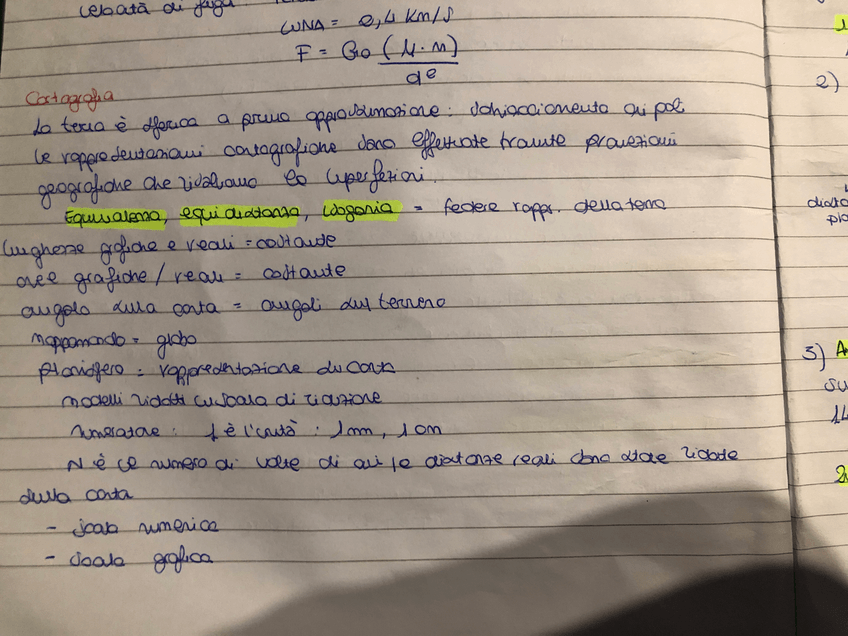 velocità di fuga
LUNA = 2,4 km/s
F = G (M·m)
d²
Cartografia
La terra è sferica a prima approssimazione: schiacciamento ai poli
Le rappresentazioni cartografiche sono effettuate tramite proiezioni
geografiche che
Equivalenza, equidistanza, isogonia = fedele rappr. della terra
lunghezze grafiche e reali = costante
aree grafiche / reali = costante
angolo sulla carta = angoli sul terreno
mappamondo = globo
planisfero = rappresentazione su carta
modelli ridotti su scala di riduzione
numeratore: 1 è l'unità: 1 mm, 1 cm
N è il numero di volte di cui le distanze reali sono state ridotte
sulla carta
- scala numerica
- scala grafica
2)
3) A
su
14
2